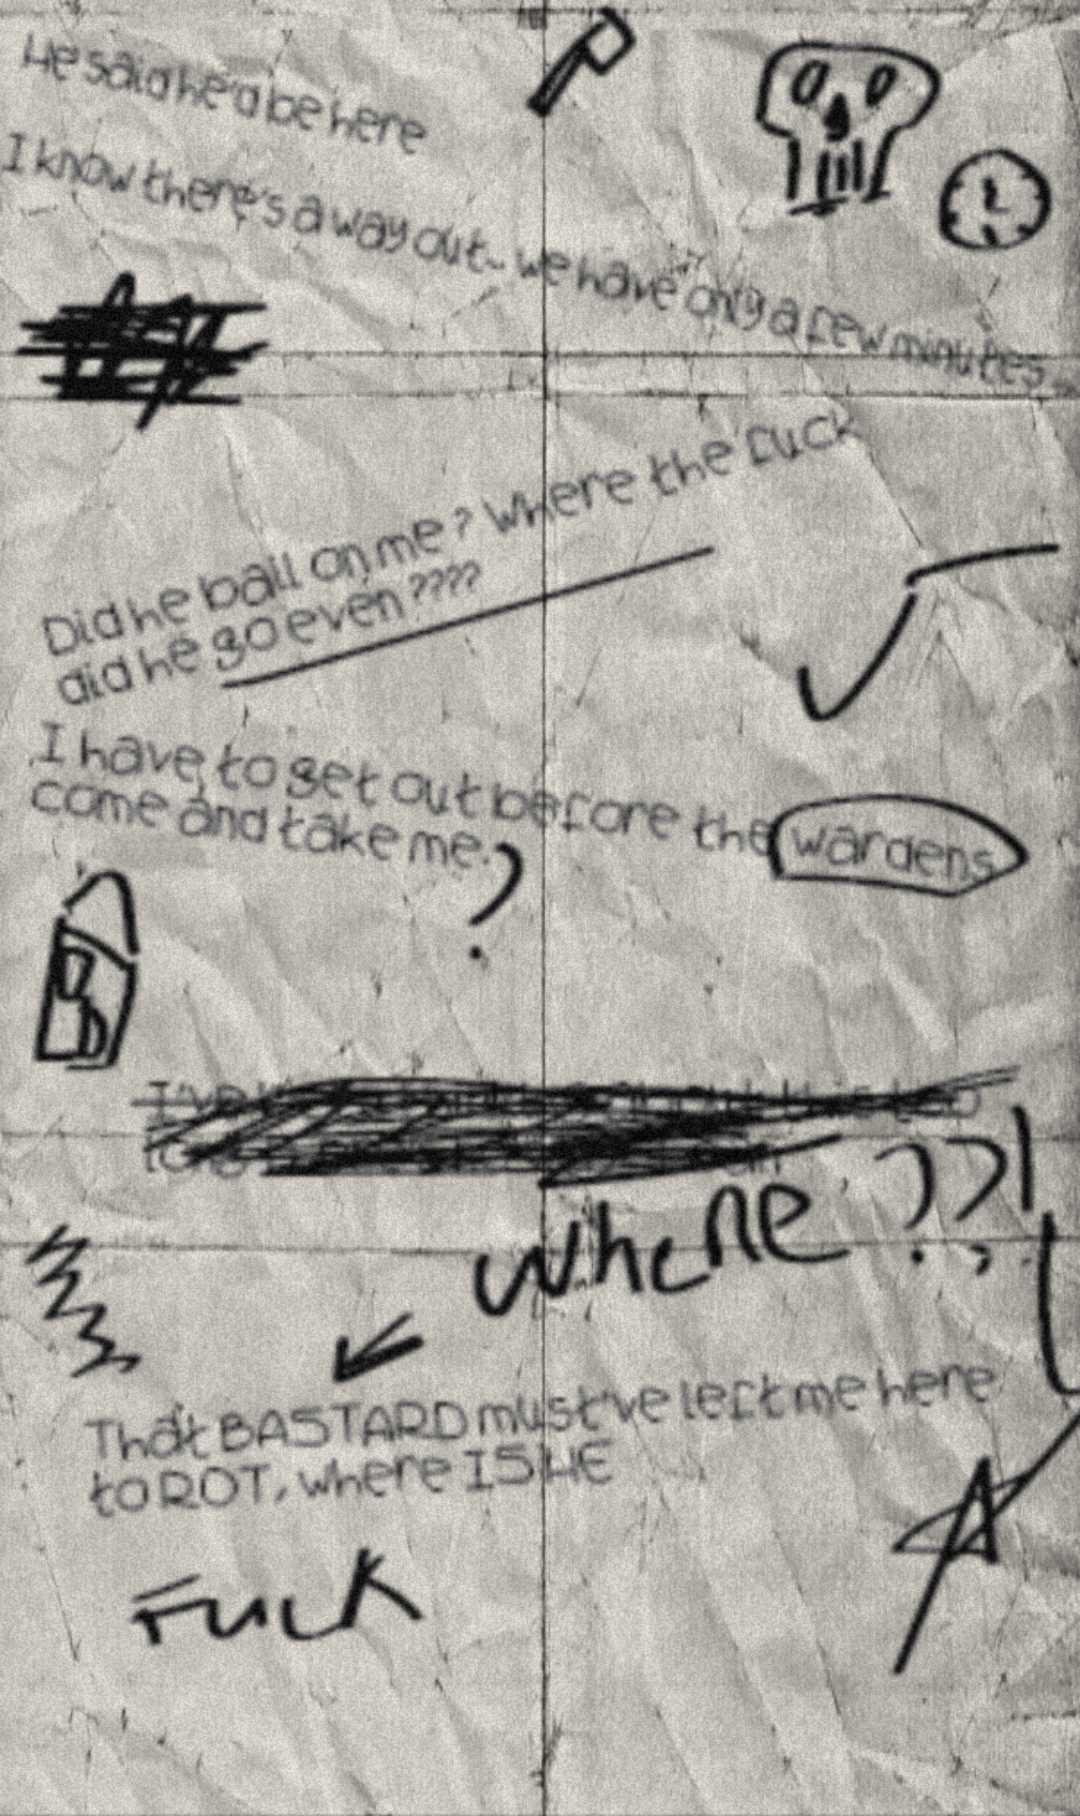 He said he'd be here
I know there's a way out.. we have only a few minutes...
Did he bail on me? Where the fuck
did he go even????
I have to get out before the wardens
come and take me.
?
I've
where ??!
That BASTARD must've left me here
to ROT, where IS HE
Fuck